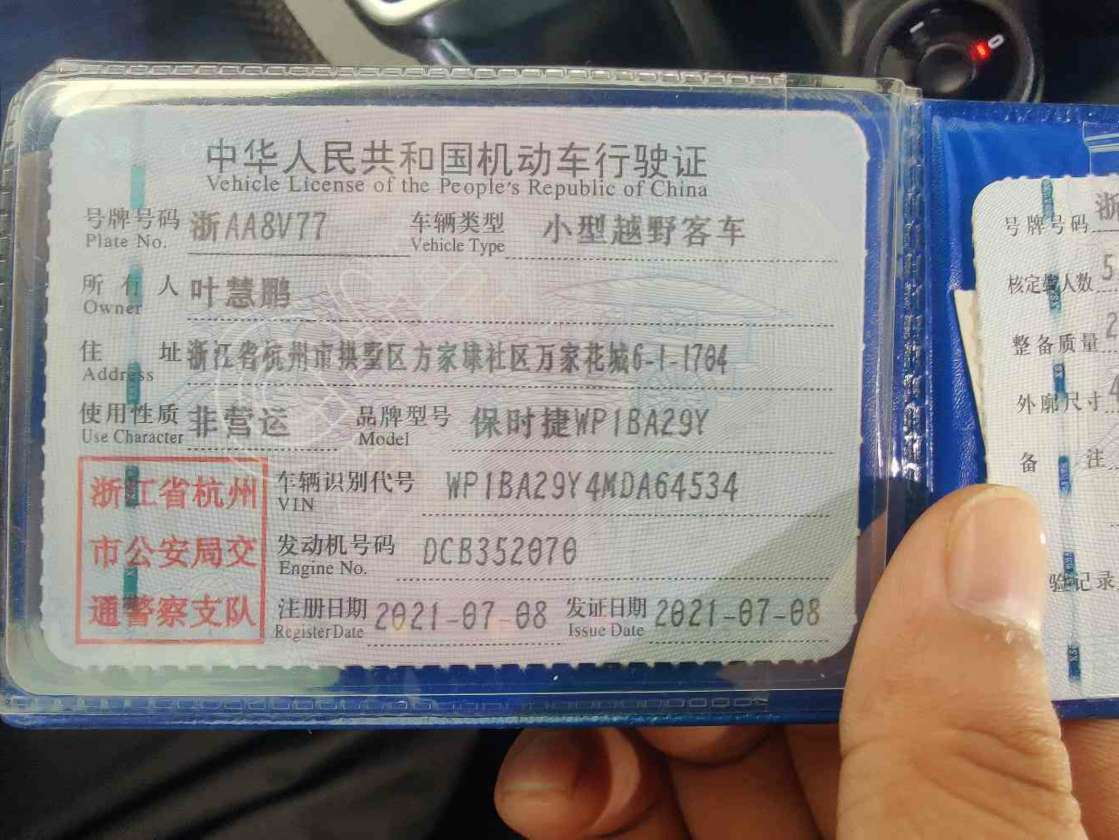 中华人民共和国机动车行驶证
Vehicle License of the People's Republic of China
号牌号码 浙AA8V77 车辆类型 小型越野客车
Plate No. Vehicle Type
所有人 叶慧鹏
Owner
住址 浙江省杭州市拱墅区方家埭社区万家花城6-1-1704
Address
使用性质 非营运 品牌型号 保时捷WP1BA29Y
Use Character Model
浙江省杭州
市公安局交
通警察支队
车辆识别代号 WP1BA29Y4MDA64534
VIN
发动机号码 DCB352070
Engine No.
注册日期 2021-07-08 发证日期 2021-07-08
Register Date Issue Date
号牌号码 浙
核定载人数 5
整备质量 2
外廓尺寸
备注
验记录